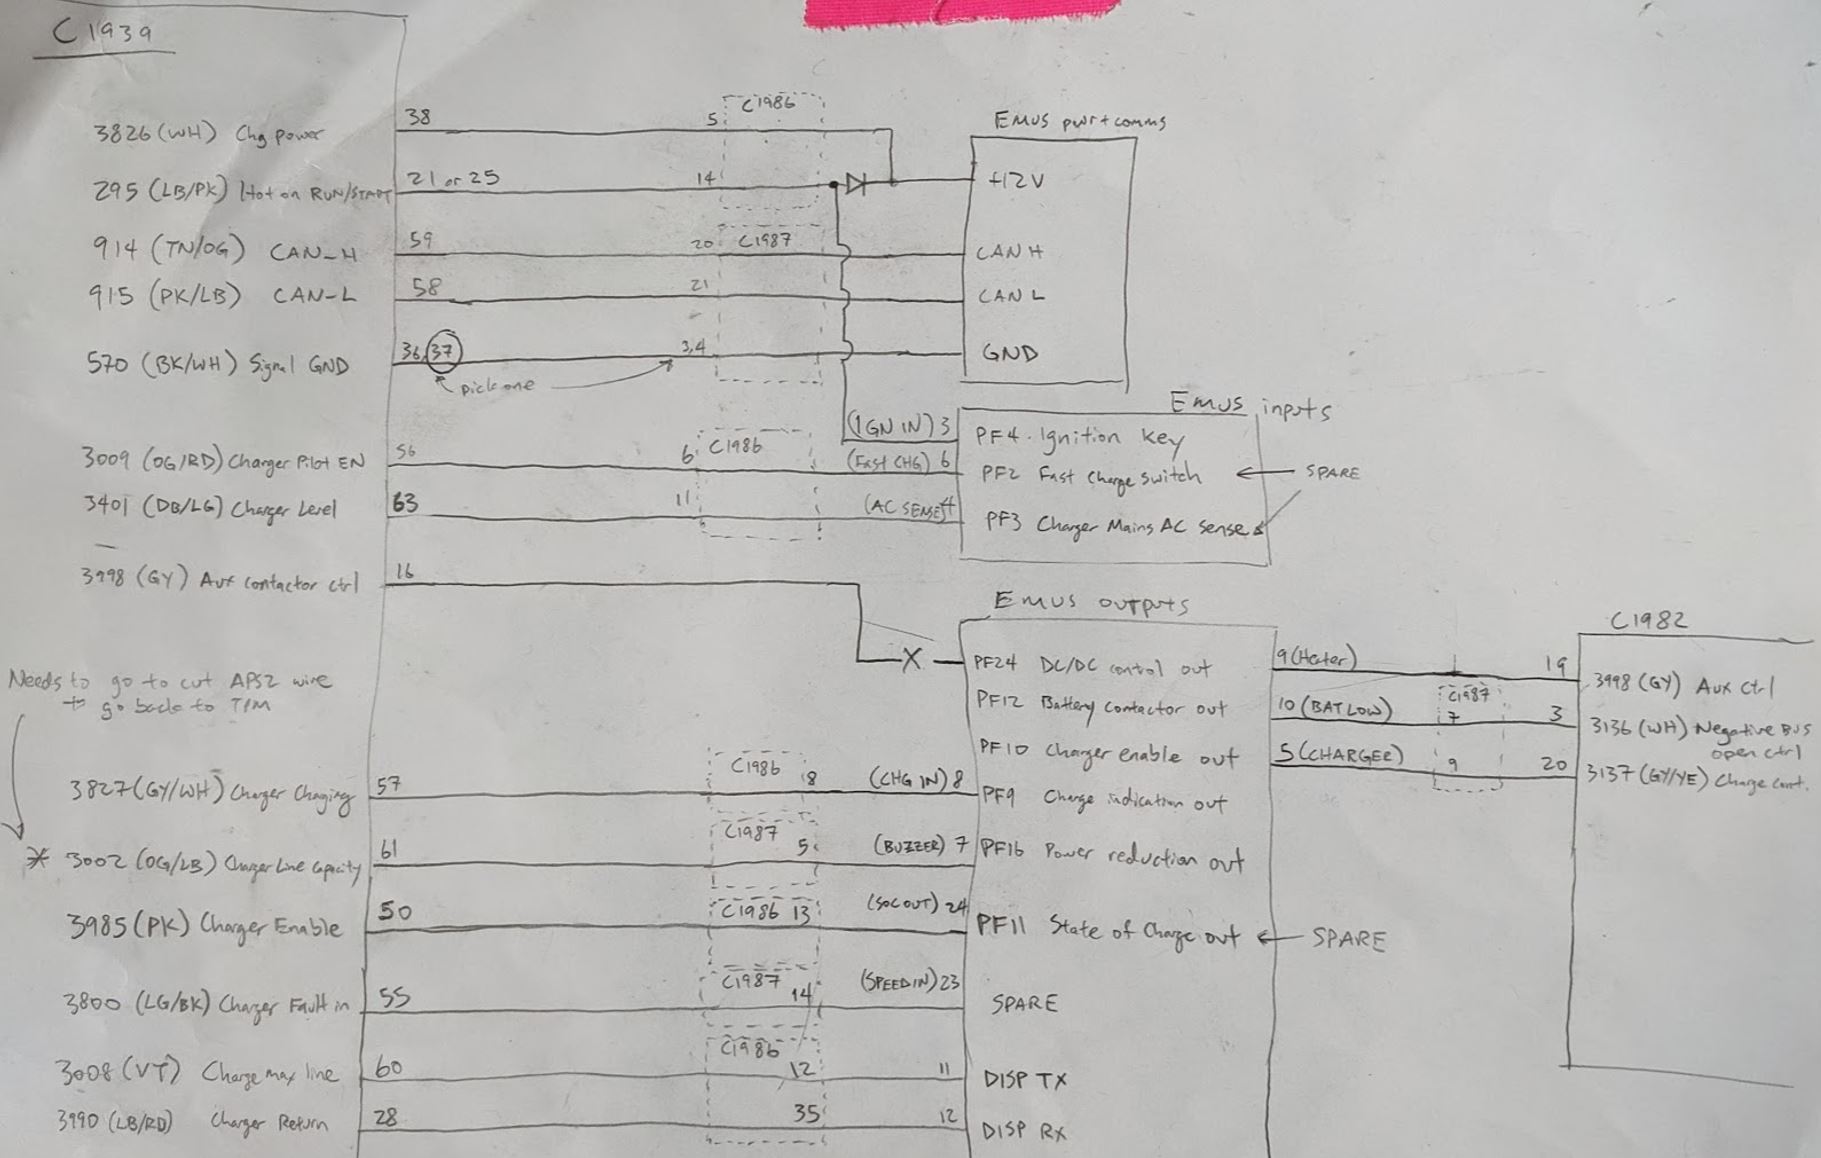 C1939
3826 (WH) Chg power 38 5 C1986
Emus pwr+comms
295 (LB/PK) Hot on RUN/START 21 or 25 14 +12V
914 (TN/OG) CAN-H 59 20 C1987 CAN H
915 (PK/LB) CAN-L 58 21 CAN L
570 (BK/WH) Signal GND 36, 37 3,4 GND
pick one
Emus inputs
(IGN IN) 3 PF4. Ignition key
3009 (OG/RD) Charger Pilot EN 56 6 C1986 (Fast CHG) 6 PF2 Fast Charge Switch SPARE
3401 (DB/LG) Charger Level 63 11 (AC SENSE) PF3 Charger Mains AC sense
3998 (GY) Aux contactor ctrl 16
Emus outputs
C1982
X PF24 DC/DC control out 9 (Heater) 19 3998 (GY) Aux Ctrl
Needs to go to cut APS2 wire
to go back to TPM
PF12 Battery contactor out 10 (BAT LOW) C1987 7 3 3136 (WH) Negative BUS
open ctrl
PF10 Charger enable out 5 (CHARGER) 9 20 3137 (GY/YE) Charge cont.
3827 (GY/WH) Charger Charging 57 C1986 8 (CHG IN) 8 PF9 Charge indication out
* 3002 (OG/LB) Charger Line Capacity 61 C1987 5 (BUZZER) 7 PF16 Power reduction out
3985 (PK) Charger Enable 50 C1986 13 (SOC OUT) 24 PF11 State of Charge out SPARE
3800 (LG/BK) Charger Fault in 55 C1987 14 (SPEED IN) 23 SPARE
3008 (VT) Charge max line 60 C1986 12 11 DISP TX
3990 (LB/RD) Charger Return 28 35 12 DISP RX